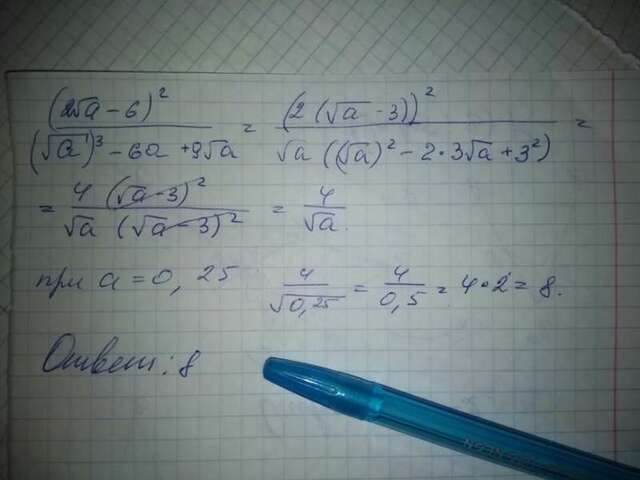 (2√a - 6)² / ((√a)³ - 6a + 9√a) = (2(√a - 3))² / (√a((√a)² - 2·3√a + 3²)) =
= 4(√a - 3)² / (√a(√a - 3)²) = 4/√a.
при a = 0,25 4/√0,25 = 4/0,5 = 4·2 = 8.
Ответ: 8